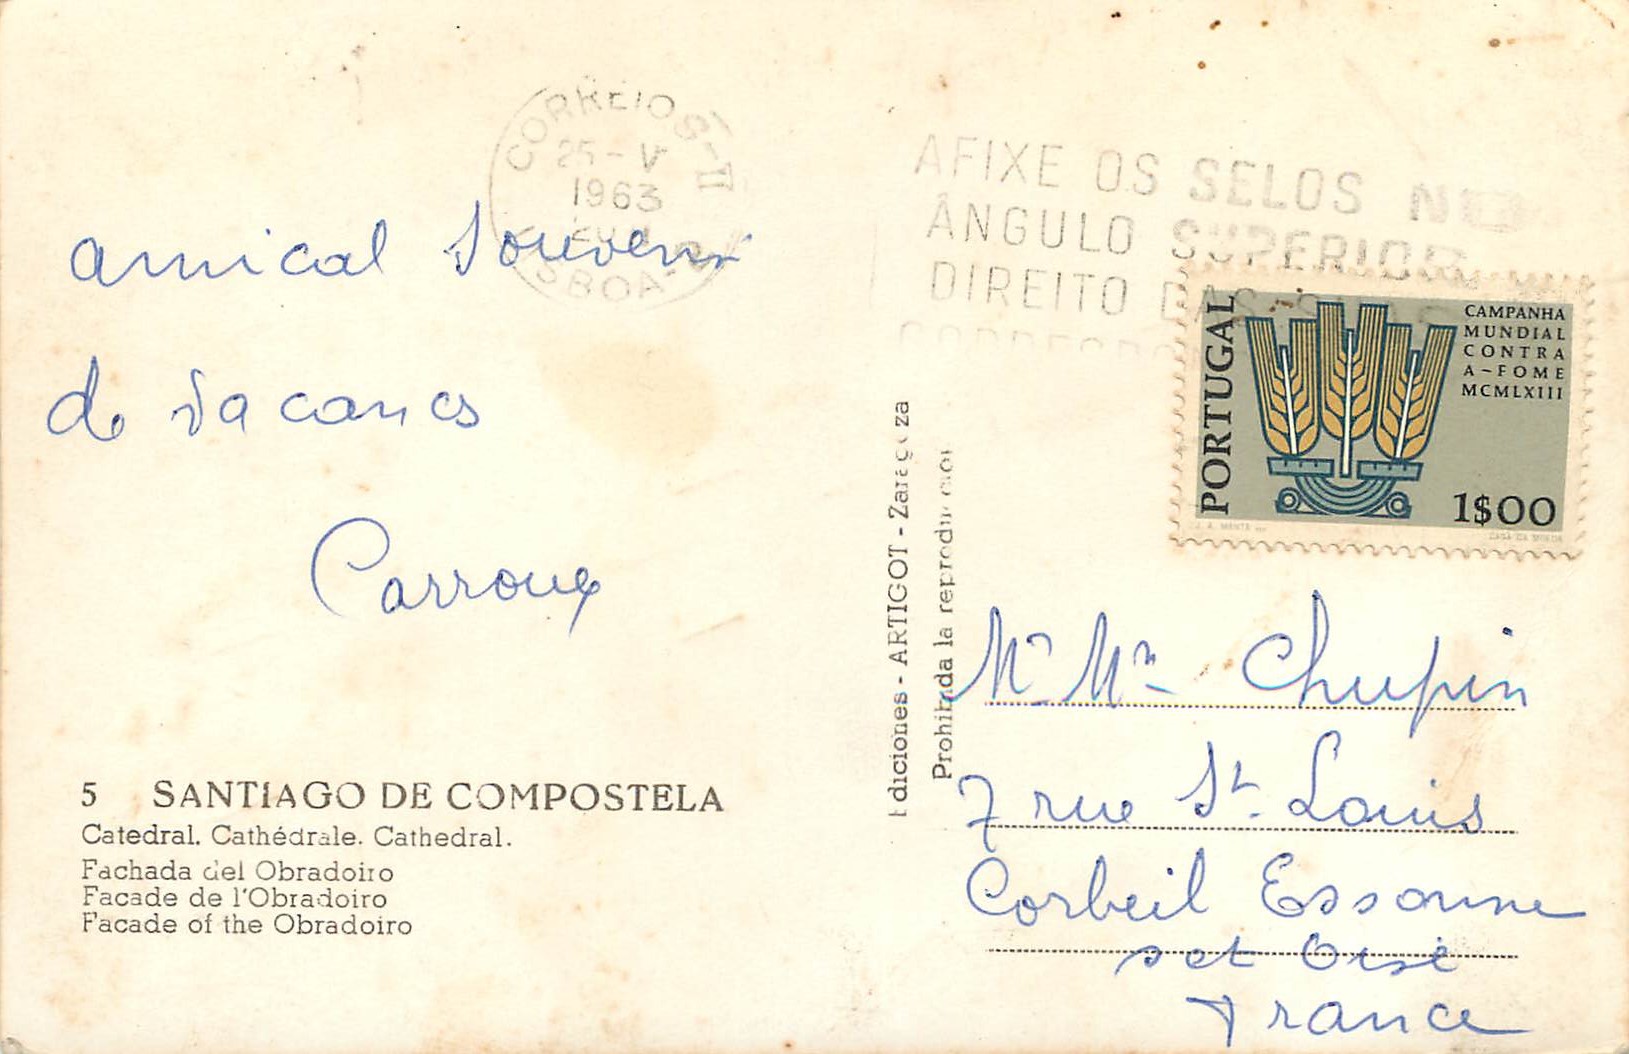 CORREIOS-II
25-V
1963
LISBOA-
AFIXE OS SELOS NO
ÂNGULO SUPERIOR
DIREITO DAS
amical Souvenir
de vacances
Carroux
5 SANTIAGO DE COMPOSTELA
Catedral. Cathédrale. Cathedral.
Fachada del Obradoiro
Facade de l'Obradoiro
Facade of the Obradoiro
Ediciones - ARTIGOT - Zaragoza
Prohibida la reproduccion
PORTUGAL
CAMPANHA
MUNDIAL
CONTRA
A-FOME
MCMLXIII
1$00
J. A. MANTA
CASA DA MOEDA
Mr Mme Chupin
7 rue St. Louis
Corbeil Essonne
set Oise
France